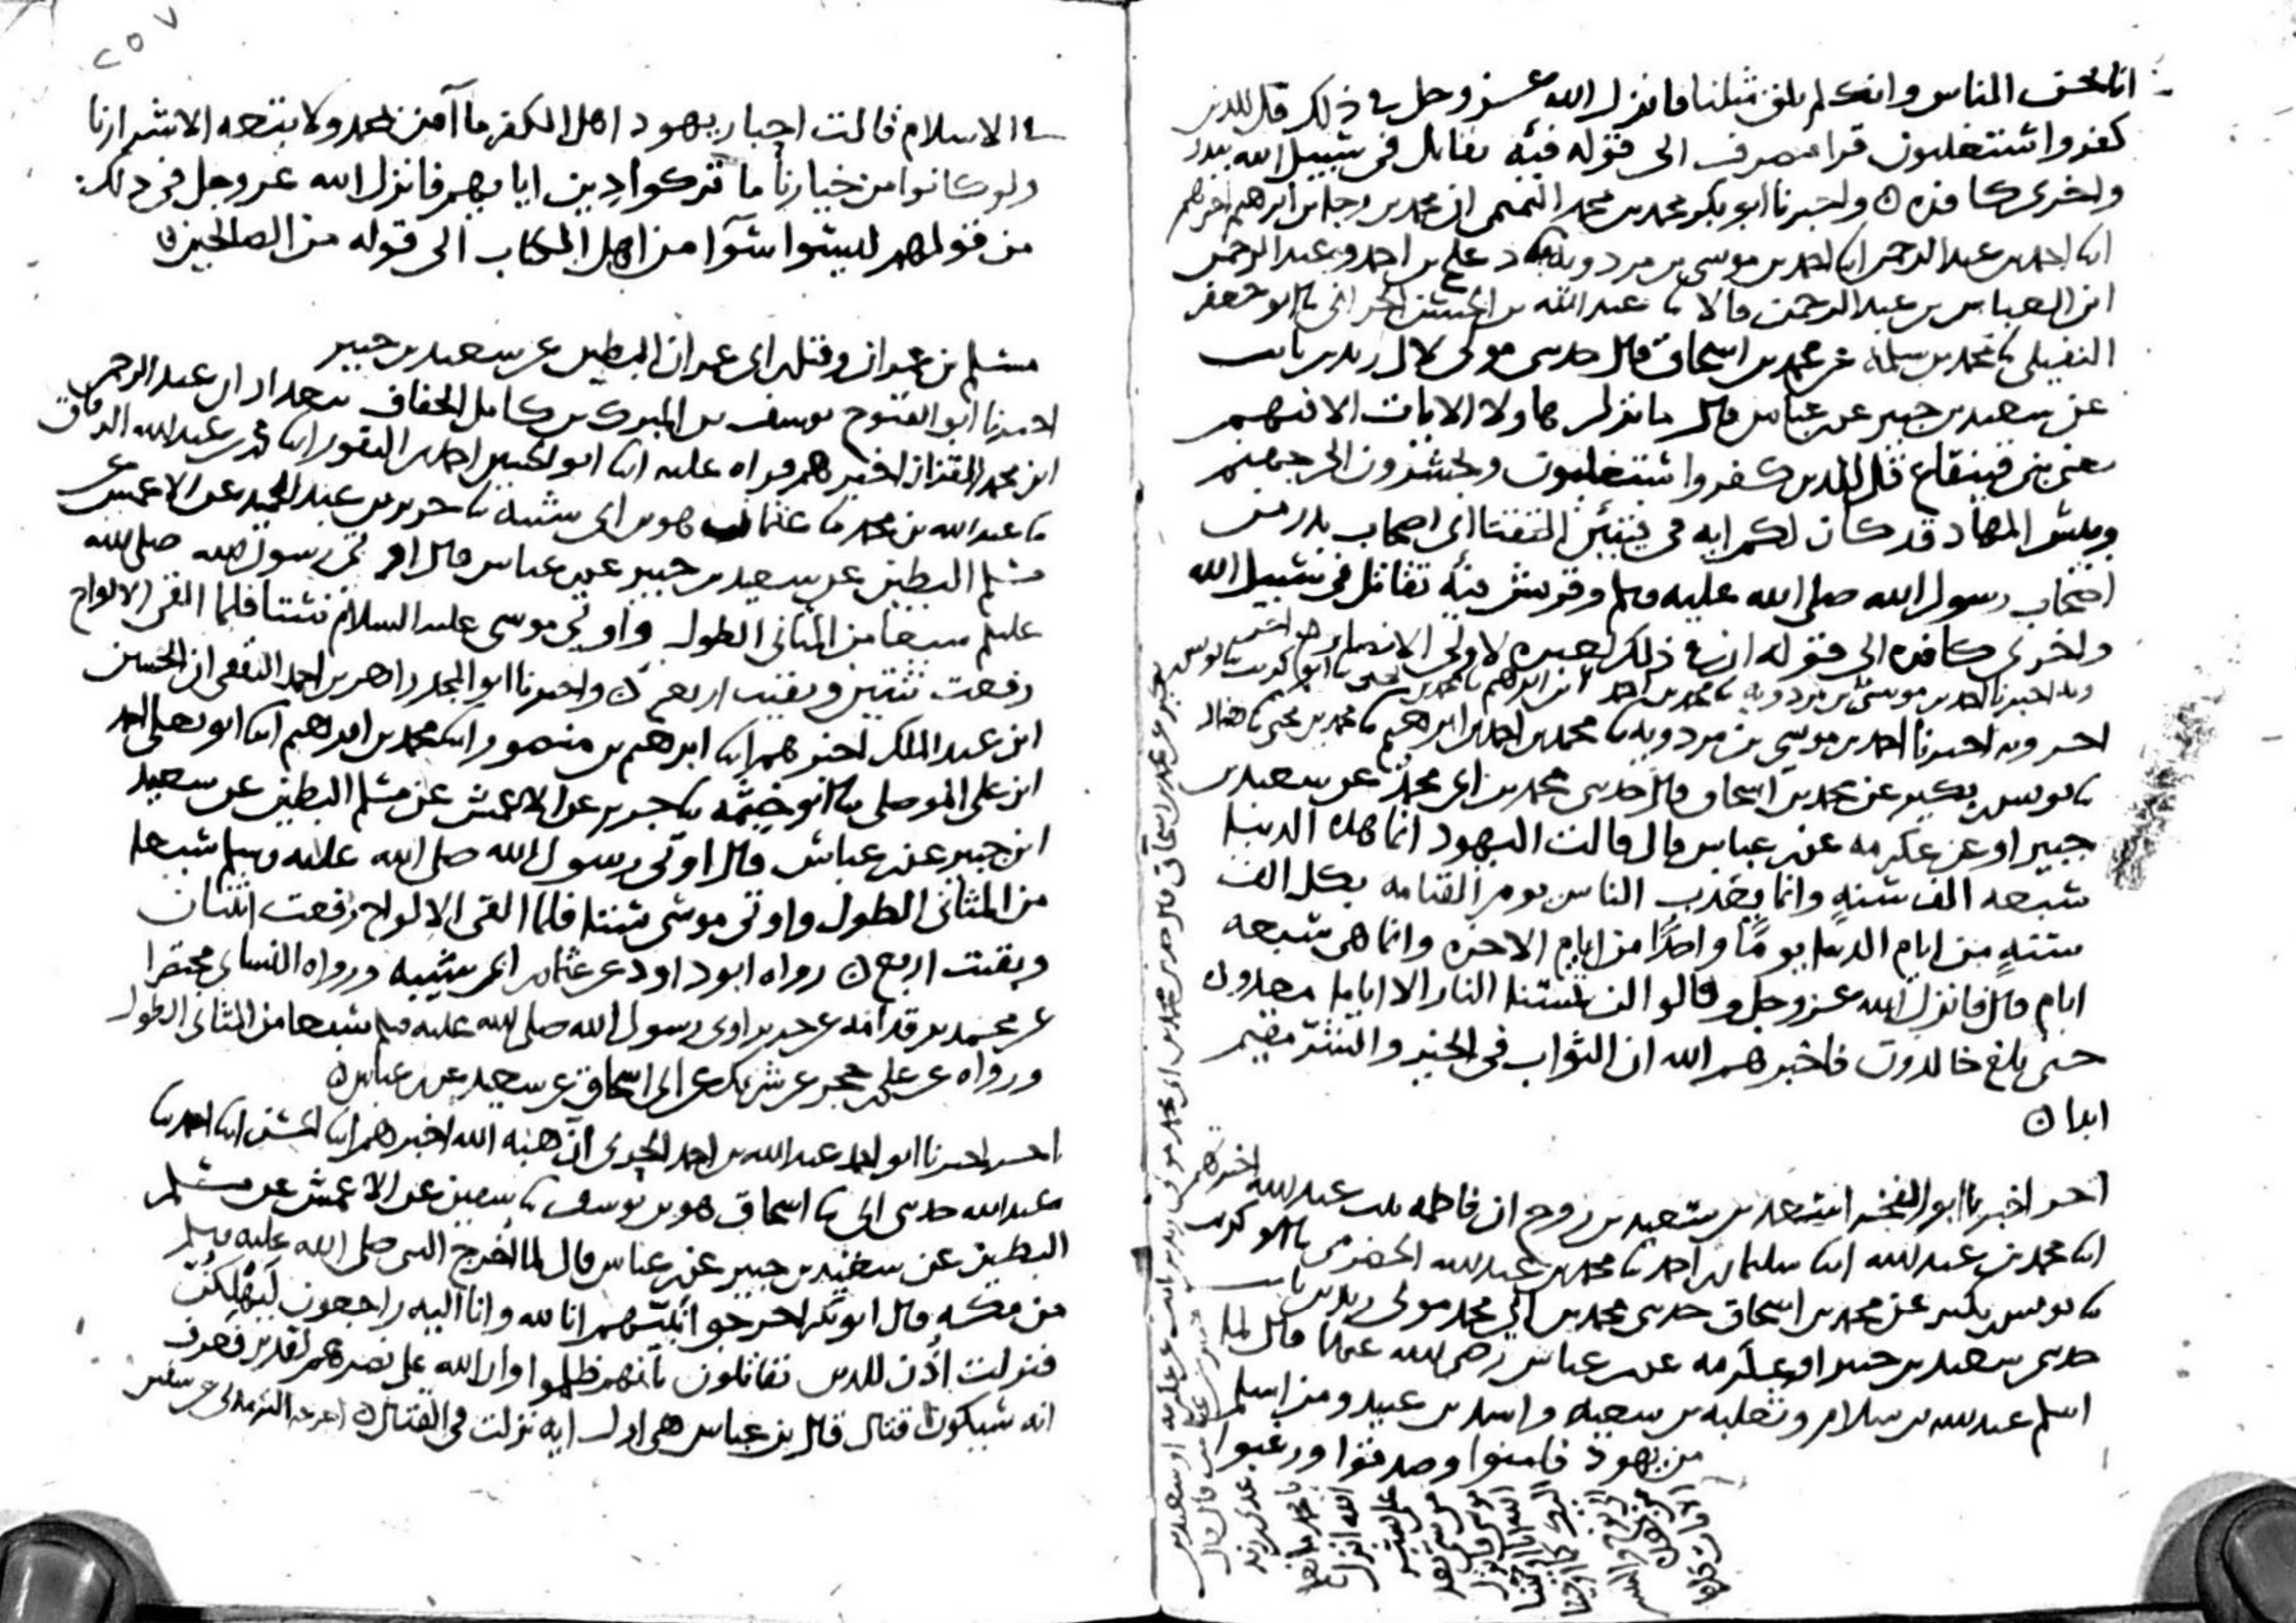 انا نحن الناس وانك لم تلق مثلنا فانزل الله عز وجل في ذلك قل للذين
كفروا ستغلبون قرا مصرف الى قوله فئة تقاتل في سبيل الله ببدر
واخرى كافرة واخبرنا ابو بكر محمد بن محمد التميمي ان محمد بن رجا بن ابرهيم اخبرهم
ابنا احمد بن عبد الرحمن ابنا احمد بن موسى بن مردويه دعلج بن احمد وعبد الرحمن
ابن العباس بن عبد الرحمن قالا ثنا عبد الله بن الحسن الحراني ثنا ابو جعفر
النفيلي ثنا محمد بن سلمة عن محمد بن اسحاق قال حدثني مولى لال زيد بن ثابت
عن سعيد بن جبير عن ابن عباس قال ما نزل هاولا الايات الا فيهم
يعني بني قينقاع قل للذين كفروا ستغلبون وتحشرون الى جهنم
وبئس المهاد قد كان لكم اية في فئتين التقتا اي اصحاب بدر من
اصحاب رسول الله صلى الله عليه وسلم وقريش فئة تقاتل في سبيل الله
واخرى كافرة الى قوله ان في ذلك لعبرة لاولي الابصار
وبه اخبرنا احمد بن موسى بن مردويه ثنا محمد بن احمد بن ابرهيم ثنا محمد بن يحيى ثنا ابو كريب ثنا يونس
اخر وبه اخبرنا احمد بن موسى بن مردويه ثنا محمد بن احمد بن ابرهيم ثنا محمد بن يحيى ثنا
ثنا يونس بن بكير عن محمد بن اسحاق قال حدثني محمد بن ابي محمد عن سعيد بن
جبير او عن عكرمه عن ابن عباس قال قالت اليهود انما هذه الدنيا
سبعة الف سنة وانما يعذب الناس يوم القيامه بكل الف
سنة من ايام الدنيا يوما واحدا من ايام الاخرة وانما هي سبعه
ايام قال فانزل الله عز وجل وقالوا لن تمسنا النار الا اياما معدوده
حتى بلغ خالدون فاخبرهم الله ان الثواب في الخير والشر مقيم
ابدا
اخر اخبرنا ابو الفخر اسعد بن سعيد بن روح ان فاطمه بنت عبد الله اخبرتهم
ابنا محمد بن عبد الله ابنا سليمان بن احمد ثنا محمد بن عبد الله الحضرمي ثنا ابو كريب
ثنا يونس بن بكير عن محمد بن اسحاق حدثني محمد بن ابي محمد مولى زيد بن ثابت
حدثني سعيد بن جبير او عكرمه عن ابن عباس رضي الله عنهما قال لما
اسلم عبد الله بن سلام وثعلبه بن سعيه واسد بن عبيد ومن اسلم
من يهود فامنوا وصدقوا ورغبوا
٢٥٧
في الاسلام قالت احبار يهود اهل الكفر ما آمن بمحمد ولا يتبعه الا شرارنا
ولو كانوا من خيارنا ما تركوا دين ابايهم فانزل الله عز وجل في ذلك
من قولهم ليسوا سوآ من اهل الكتاب الى قوله من الصالحين
مسلم بن عمران وقيل ابن ابي عمران البطين عن سعيد بن جبير
اخبرنا ابو الفتوح يوسف بن المبرك بن كامل الخفاف ببغداد ان عبد الرحمن
ابن محمد القزاز اخبرهم قراه عليه ابنا ابو الحسين احمد بن النقور ابنا محمد بن عبد الله الدقاق
ثنا عبد الله بن محمد ثنا عثمان هو بن ابي شيبه ثنا جرير بن عبد الحميد عن الاعمش عن
مسلم البطين عن سعيد بن جبير عن ابن عباس قال اوتي رسول الله صلى الله
عليه وسلم سبعا من المثاني الطول واوتي موسى عليه السلام ستا فلما القى الالواح
رفعت ثنتين وبقيت اربع واخبرنا ابو المجد زاهر بن احمد الثقفي ان الحسين
ابن عبد الملك اخبرهم ابنا ابرهيم بن منصور ابنا محمد بن ابراهيم ابنا ابو يعلى احمد
ابن علي الموصلي ثنا ابو خيثمه ثنا جرير عن الاعمش عن مسلم البطين عن سعيد
ابن جبير عن ابن عباس قال اوتي رسول الله صلى الله عليه وسلم سبعا
من المثاني الطول واوتي موسى ستا فلما القى الالواح رفعت اثنتان
وبقيت اربع رواه ابو داود عن عثمان بن ابي شيبه ورواه النساي مختصرا
عن محمد بن قدامه عن جرير اوتي رسول الله صلى الله عليه وسلم سبعا من المثاني الطول
ورواه عن علي بن حجر عن شريك عن ابي اسحاق عن سعيد عن ابن عباس
اخر اخبرنا ابو احمد عبد الله بن احمد الحربي ان هبة الله اخبرهم ابنا الحسن ابنا احمد ثنا
عبد الله حدثني ابي ثنا اسحاق هو بن يوسف ثنا سفين عن الاعمش عن مسلم
البطين عن سعيد بن جبير عن ابن عباس قال لما اخرج النبي صلى الله عليه وسلم
من مكه قال ابو بكر اخرجوا نبيهم انا لله وانا اليه راجعون ليهلكن
فنزلت اذن للذين يقاتلون بانهم ظلموا وان الله على نصرهم لقدير فعرف
انه سيكون قتال قال ابن عباس هي اول اية نزلت في القتال اخرجه الترمذي عن سفين